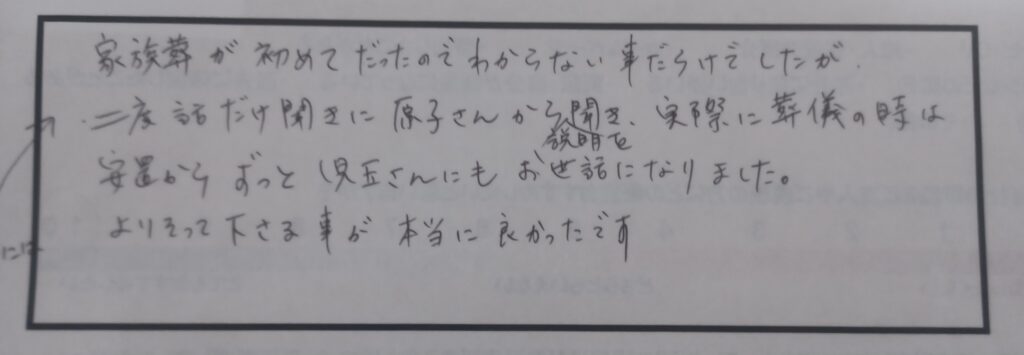 家族葬が初めてだったのでわからない事だらけでしたが、
二度話だけ聞きに原子さんから説明を聞き、実際に葬儀の時は
安置からずっと児玉さんにもお世話になりました。
よりそって下さる事が本当に良かったです
には